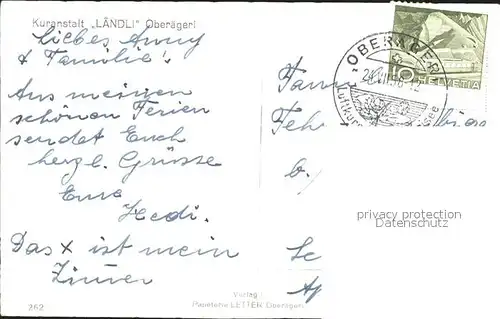 Kuranstalt „LÄNDLI" Oberägeri
Liebes Anny
& Familie!
Aus meinen
schönen Ferien
sendet Euch
herzl. Grüsse
Eure
Hedi.
Das x ist mein
Zimmer
262
Verlag
Papeterie LETTER Oberägeri
OBERÄGERI
HELVETIA
Fam
Feh
b.
privacy protection
Datenschutz